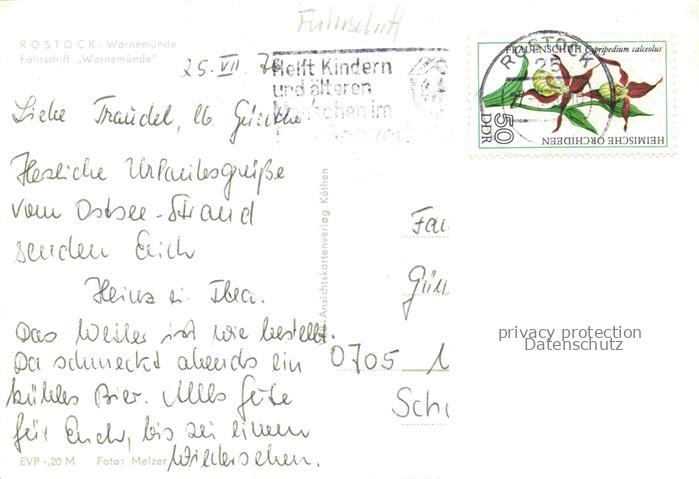 Fährschiff
ROSTOCK - Warnemünde
Fährschiff „Warnemünde"
25. VII. 76
Helft Kindern
und älteren
Menschen im
ROSTOCK
25
FRAUENSCHUH Cypripedium calceolus
HEIMISCHE ORCHIDEEN
50
DDR
Liebe Traudel, lb. Günther
Herzliche Urlaubsgrüße
vom Ostsee-Strand
senden Euch
Heinz u. Ilse.
Das Wetter ist wie bestellt.
Da schmeckt abends ein
kühles Bier. Alles Gute
für Euch, bis zu einem
Wiedersehen.
Ansichtskartenverlag Köthen
Fa
Gün
0705
Sch
privacy protection
Datenschutz
EVP -,20 M Foto: Melzer